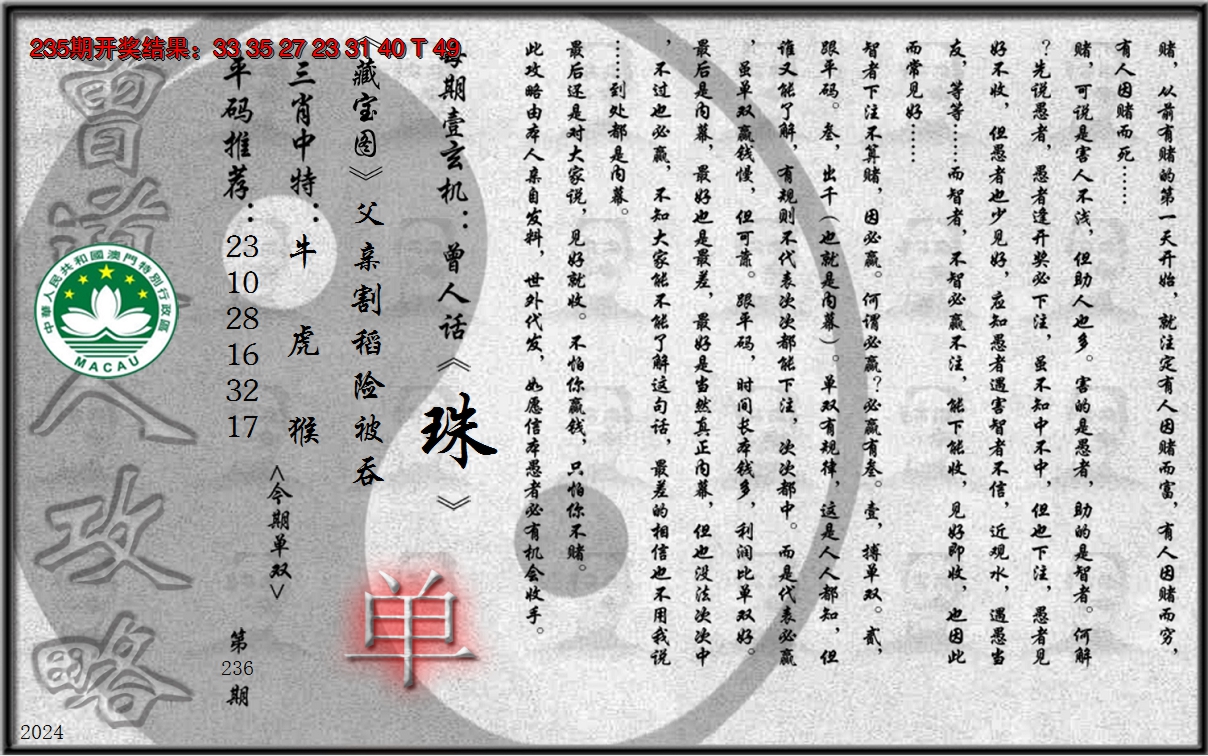 235期开奖结果：33 35 27 23 31 40 T 49
赌，从前有赌的第一天开始，就注定有人因赌而富，有人因赌而穷，
有人因赌而死……
赌，可说是害人不浅，但助人也多。害的是愚者，助的是智者。何解
？先说愚者，愚者逢开奖必下注，虽不知中不中，但也下注，愚者见
好不收，但愚者也少见好，应知愚者遇害智者不信，近观水，遇愚当
友，等等……而智者，不智必赢不注，能下能收，见好即收，也因此
而常见好……
智者下注不算赌，因必赢。何谓必赢？必赢有叁。壹，搏单双。贰，
跟平码。叁，出千（也就是内幕）。单双有规律，这是人人都知，但
谁又能了解，有规则不代表次次都能下注，次次都中。而是代表必赢
，虽单双赢钱慢，但可靠。跟平码，时间长本钱多，利润比单双好。
最后是内幕，最好也是最差，最好是当然真正内幕，但也没法次次中
，不过也必赢，不知大家能不能了解这句话，最差的相信也不用我说
……到处都是内幕。
最后还是对大家说，见好就收。不怕你赢钱，只怕你不赌。
此攻略由本人亲自发料，世外代发，如愿信本愚者必有机会收手。
每期壹玄机：曾人话《珠》
《藏宝图》父亲割稻险被吞
单
三肖中特：牛 虎 猴
<今期单双>
平码推荐：
23
10
28
16
32
17
第
236
期
曾道人攻略
中華人民共和國澳門特別行政區
MACAU
2024